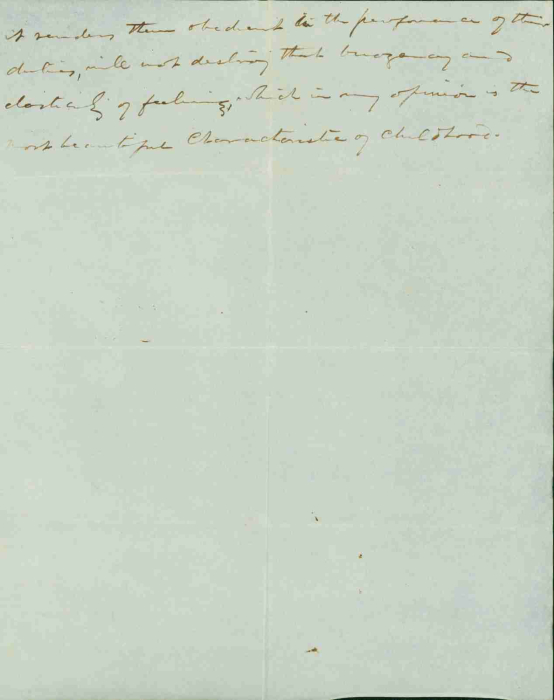 it renders them obedient in the performance of their
duties, will not destroy that buoyancy and
elasticity of feeling, which in my opinion is the
most beautiful characteristic of childhood.